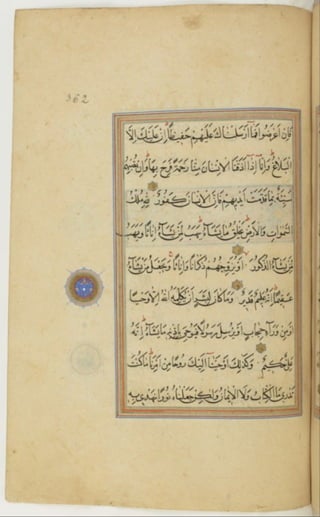 362
فَإِنْ أَعْرَضُوا فَمَا أَرْسَلْنَاكَ عَلَيْهِمْ حَفِيظًا إِنْ عَلَيْكَ إِلَّا
الْبَلَاغُ وَإِنَّا إِذَا أَذَقْنَا الْإِنْسَانَ مِنَّا رَحْمَةً فَرِحَ بِهَا وَإِنْ تُصِبْهُمْ
سَيِّئَةٌ بِمَا قَدَّمَتْ أَيْدِيهِمْ فَإِنَّ الْإِنْسَانَ كَفُورٌ لِلَّهِ مُلْكُ
السَّمَوَاتِ وَالْأَرْضِ يَخْلُقُ مَا يَشَاءُ يَهَبُ لِمَنْ يَشَاءُ إِنَاثًا وَيَهَبُ
لِمَنْ يَشَاءُ الذُّكُورَ أَوْ يُزَوِّجُهُمْ ذُكْرَانًا وَإِنَاثًا وَيَجْعَلُ مَنْ يَشَاءُ
عَقِيمًا إِنَّهُ عَلِيمٌ قَدِيرٌ وَمَا كَانَ لِبَشَرٍ أَنْ يُكَلِّمَهُ اللَّهُ إِلَّا وَحْيًا
أَوْ مِنْ وَرَاءِ حِجَابٍ أَوْ يُرْسِلَ رَسُولًا فَيُوحِيَ بِإِذْنِهِ مَا يَشَاءُ إِنَّهُ
عَلِيٌّ حَكِيمٌ وَكَذَلِكَ أَوْحَيْنَا إِلَيْكَ رُوحًا مِنْ أَمْرِنَا مَا كُنْتَ
تَدْرِي مَا الْكِتَابُ وَلَا الْإِيمَانُ وَلَكِنْ جَعَلْنَاهُ نُورًا نَهْدِي بِهِ